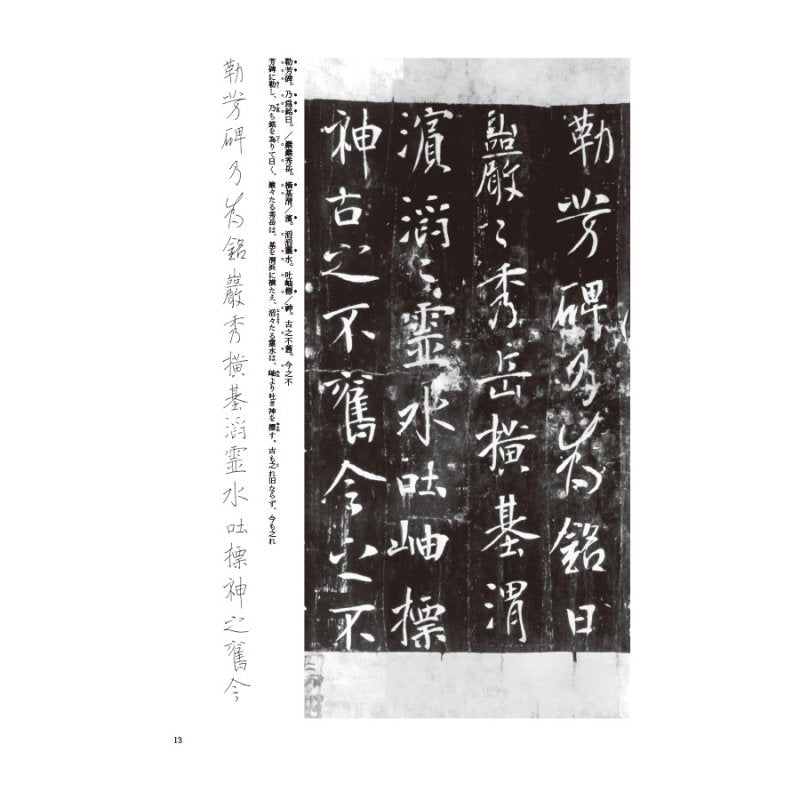 勒芳碑乃為銘曰
巖々秀岳横基渭
濱滔々靈水吐岫標
神古之不舊今之不
勒芳碑。乃爲銘曰。／巖巖秀岳。橫基渭／濱。滔滔靈水。吐岫標／神。古之不舊。今之不
芳碑に勒し、乃ち銘を為りて曰く、巖々たる秀岳は、基を渭浜に横たえ、滔々たる靈水は、岫より吐き神を標す。古も之れ旧ならず、今も之れ
勒芳碑乃為銘巖秀横基滔靈水吐標神之舊今
13